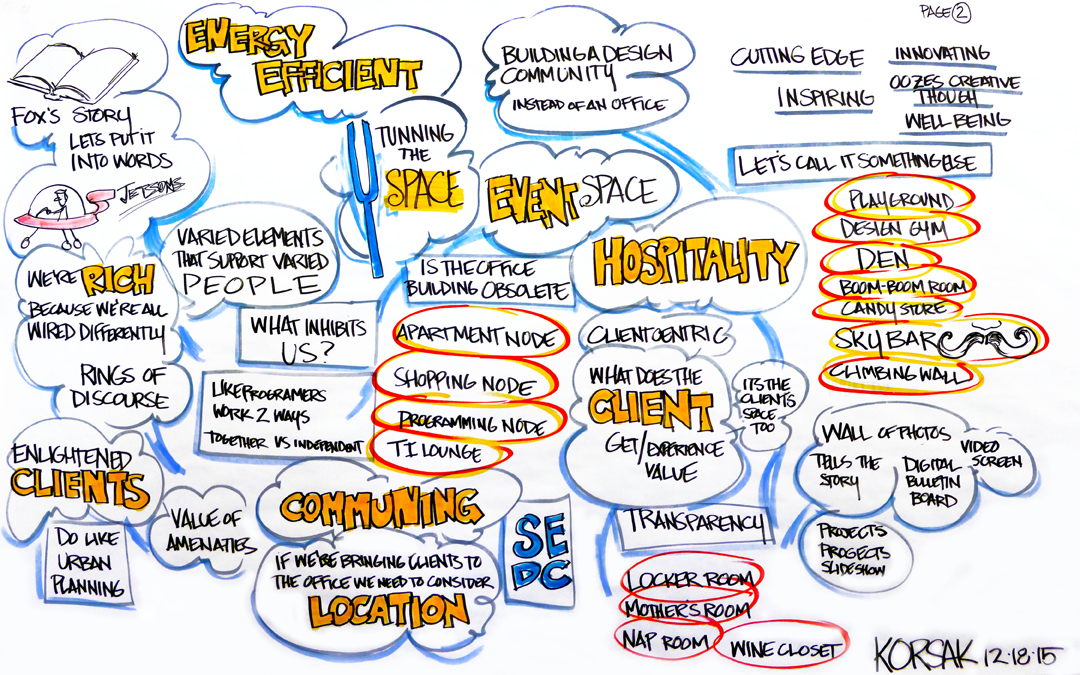 PAGE 2
FOX'S STORY
LETS PUT IT
INTO WORDS
JETSONS
WE'RE RICH
BECAUSE WE'RE ALL
WIRED DIFFERENTLY
RINGS OF
DISCOURSE
ENLIGHTENED
CLIENTS
DO LIKE
URBAN
PLANNING
VALUE OF
AMENATIES
ENERGY
EFFICIENT
TUNNING
THE
SPACE
VARIED ELEMENTS
THAT SUPPORT VARIED
PEOPLE
WHAT INHIBITS
US?
LIKE PROGRAMERS
WORK 2 WAYS
TOGETHER VS INDEPENDANT
COMMUNING
IF WE'RE BRINGING CLIENTS TO
THE OFFICE WE NEED TO CONSIDER
LOCATION
BUILDING A DESIGN
COMMUNITY
INSTEAD OF AN OFFICE
EVENT SPACE
IS THE OFFICE
BUILDING OBSOLETE
APARTMENT NODE
SHOPPING NODE
PROGRAMMING NODE
TI LOUNGE
SE
DC
HOSPITALITY
CLIENTCENTRIC
WHAT DOES THE
CLIENT
GET/EXPERIENCE
VALUE
ITS THE
CLIENTS
SPACE
TOO
TRANSPARENCY
LOCKER ROOM
MOTHER'S ROOM
NAP ROOM
WINE CLOSET
CUTTING EDGE
INSPIRING
INNOVATING
OOZES CREATIVE
THOUGH
WELL BEING
LET'S CALL IT SOMETHING ELSE
PLAYGROUND
DESIGN GYM
DEN
BOOM-BOOM ROOM
CANDY STORE
SKYBAR
CLIMBING WALL
WALL OF PHOTOS
TELLS THE
STORY
DIGITAL
BULLETIN
BOARD
VIDEO
SCREEN
PROJECTS
PROGECTS
SLIDESHOW
KORSAK 12·18·15